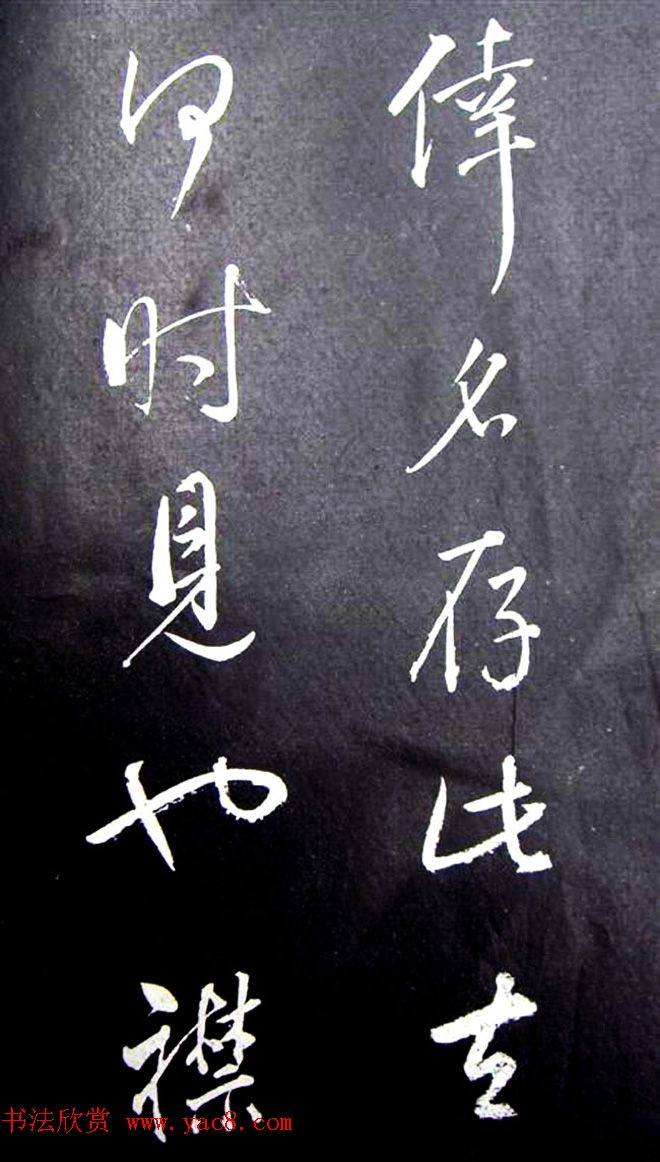 倖名存此去
何时見也襟
书法欣赏 www.yac8.com